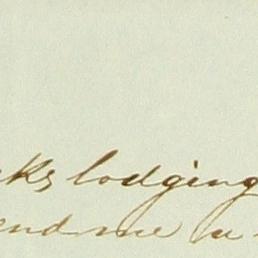 ks lodging
end me a